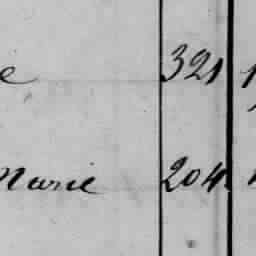 e 321 1
Marie 204